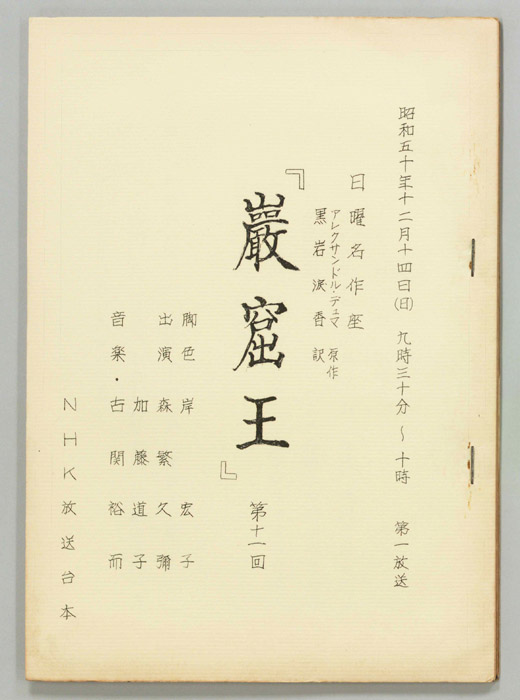 昭和五十年十二月十四日(日) 九時三十分～十時 第一放送
日曜名作座
アレクサンドル・デュマ 原作
黒岩涙香 訳
『巖窟王』 第十一回
脚色 岸宏子
出演 森繁久彌
加藤道子
音楽・古関裕而
NHK放送台本